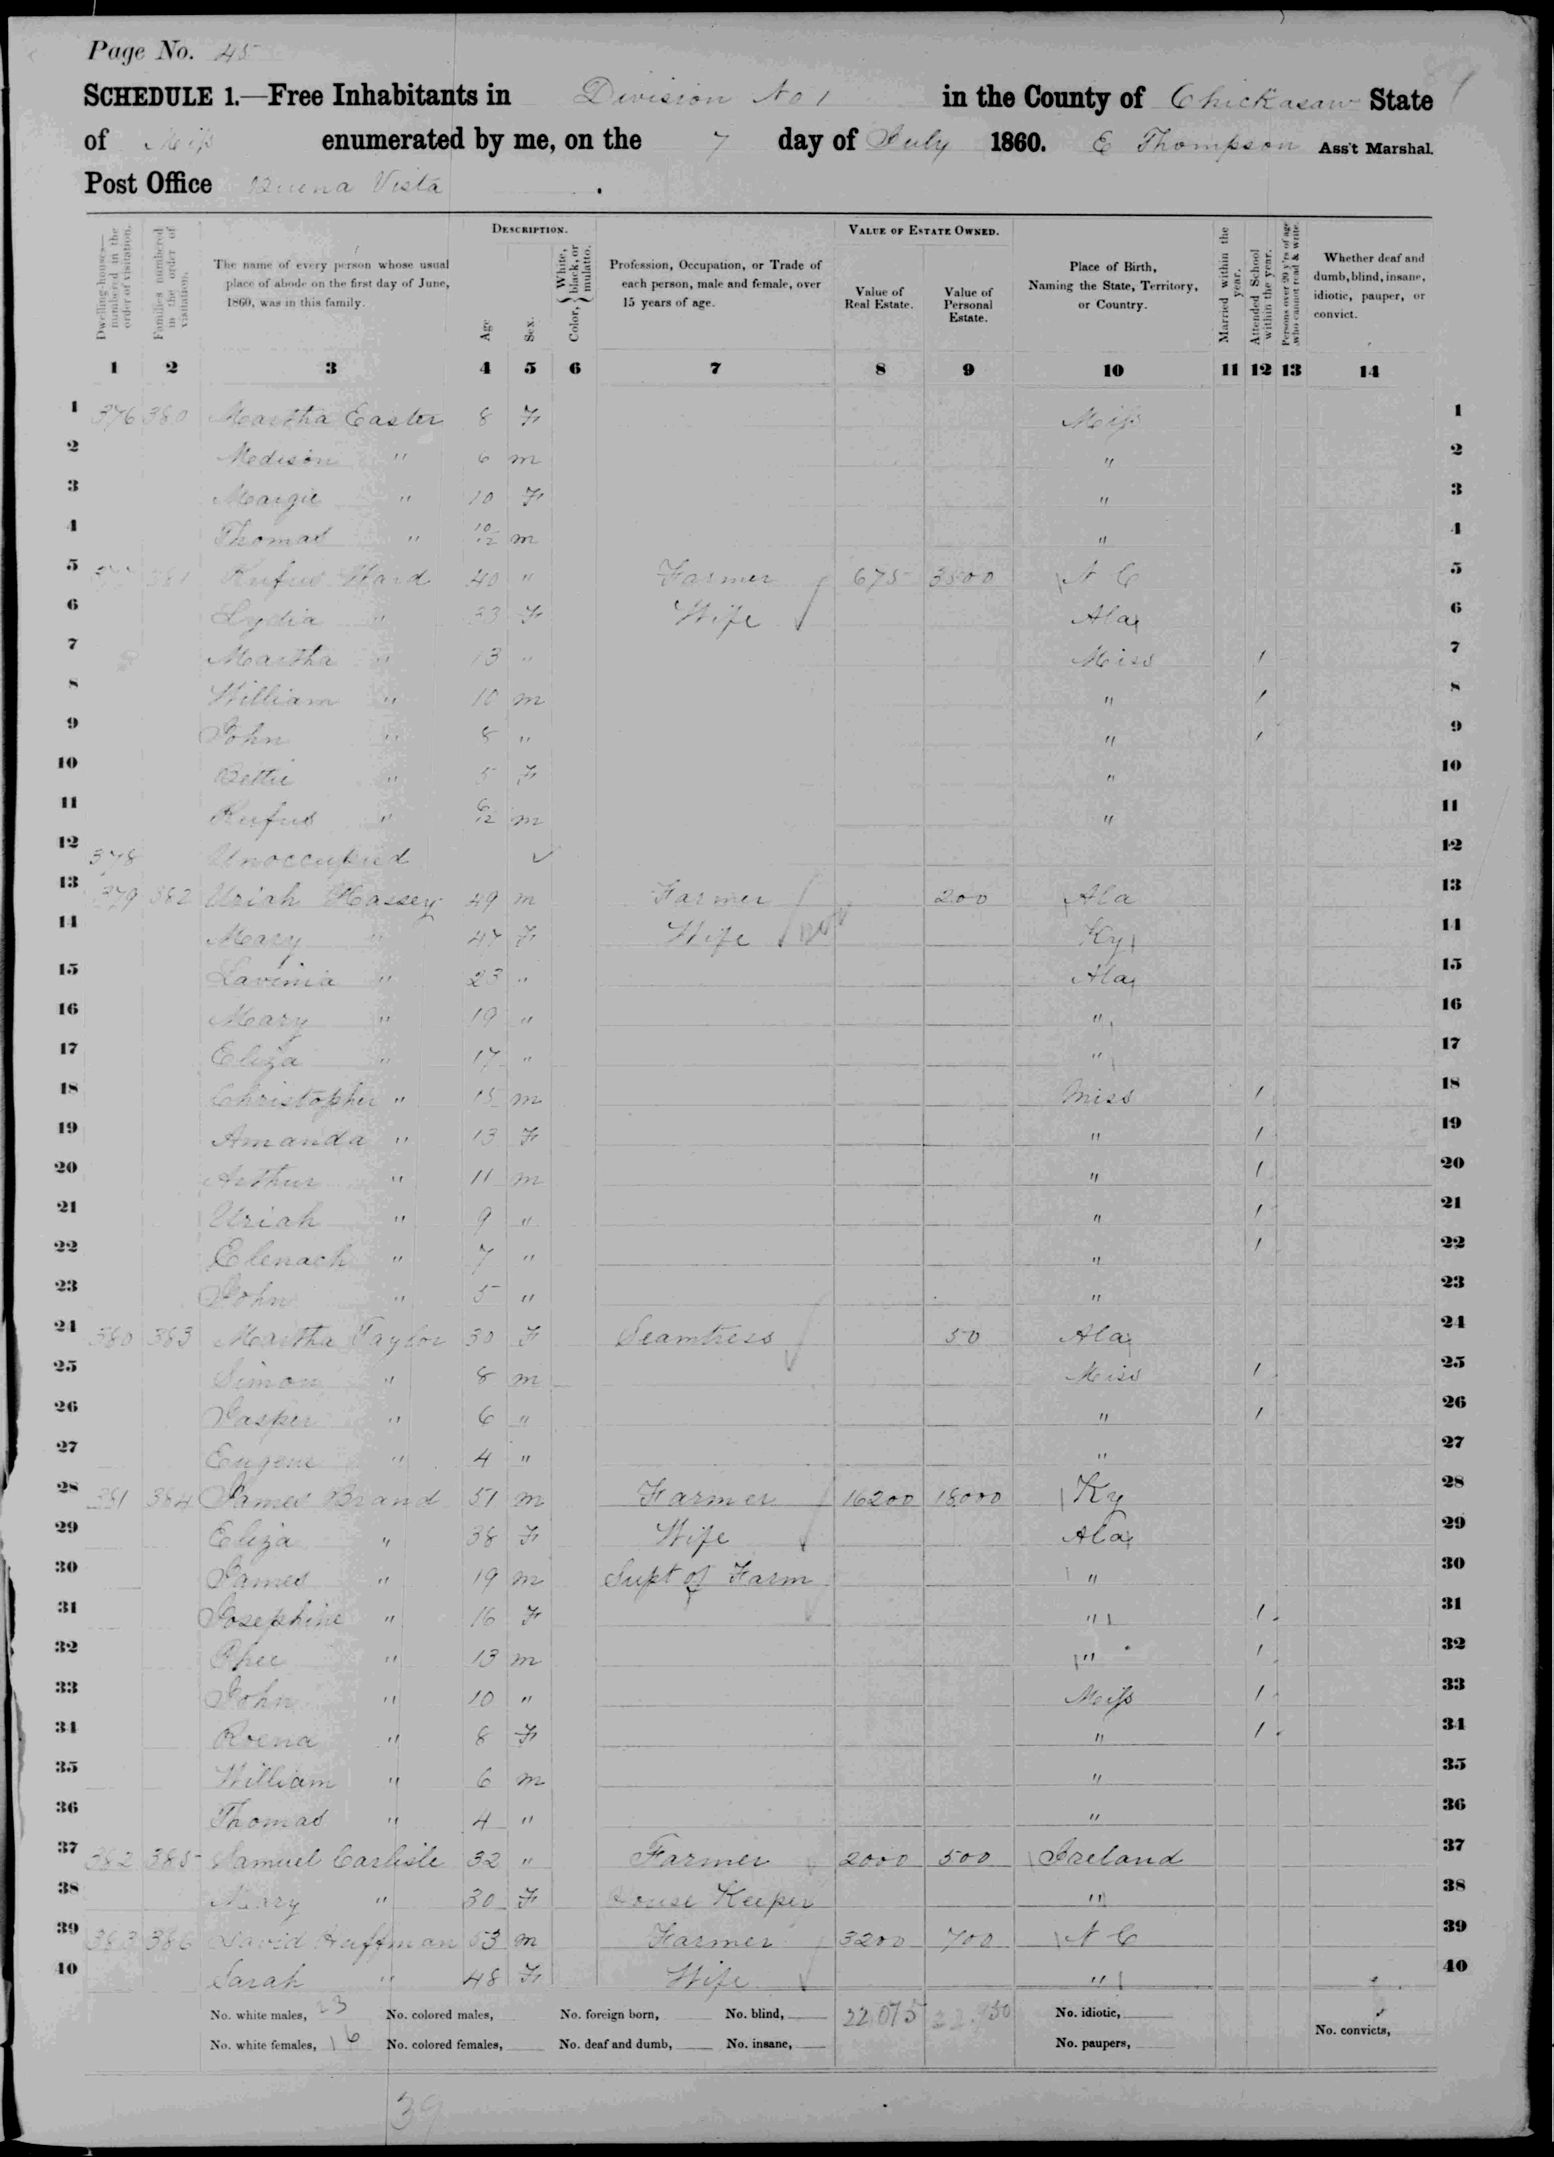 Page No. 45
SCHEDULE 1.—Free Inhabitants in Division No 1 in the County of Chickasaw State
of Miss enumerated by me, on the 7 day of July 1860. E Thompson Ass't Marshal.
Post Office Buena Vista .
Dwelling-houses—numbered in the order of visitation.
Families numbered in the order of visitation.
The name of every person whose usual place of abode on the first day of June, 1860, was in this family.
DESCRIPTION.
Age
Sex.
Color, { White, black, or mulatto.
Profession, Occupation, or Trade of each person, male and female, over 15 years of age.
VALUE OF ESTATE OWNED.
Value of Real Estate.
Value of Personal Estate.
Place of Birth, Naming the State, Territory, or Country.
Married within the year.
Attended School within the year.
Persons over 20 y'rs of age who cannot read & write.
Whether deaf and dumb, blind, insane, idiotic, pauper, or convict.
1 2 3 4 5 6 7 8 9 10 11 12 13 14
1 376 380 Martha Easter 8 F Miss 1
2 Medison " 6 m " 2
3 Margie " 10 F " 3
4 Thomas " 10/12 m " 4
5 377 381 Rufus Ward 40 " Farmer 675 3500 N C 5
6 Lydia " 33 F Wife Ala 6
7 Martha " 13 " Miss 1 7
8 William " 10 m " 1 8
9 John " 8 " " 1 9
10 Bettie " 5 F " 10
11 Rufus " 6/12 m " 11
12 378 Unoccupied 12
13 379 382 Uriah Hassey 49 m Farmer 200 Ala 13
14 Mary " 47 F Wife Ky 14
15 Lavinia " 23 " Ala 15
16 Mary " 19 " " 16
17 Eliza " 17 " " 17
18 Christopher " 15 m Miss 1 18
19 Amanda " 13 F " 1 19
20 Arthur " 11 m " 1 20
21 Uriah " 9 " " 1 21
22 Elenach " 7 " " 1 22
23 John " 5 " " 23
24 380 383 Martha Taylor 30 F Seamtress 50 Ala 24
25 Simon " 8 m Miss 1 25
26 Jasper " 6 " " 1 26
27 Eugene " 4 " " 27
28 381 384 James Brand 51 m Farmer 16200 18000 Ky 28
29 Eliza " 38 F Wife Ala 29
30 James " 19 m Supt of Farm " 30
31 Josephine " 16 F " 1 31
32 Rhee " 13 m " 1 32
33 John " 10 " Miss 1 33
34 Roena " 8 F " 1 34
35 William " 6 m " 35
36 Thomas " 4 " " 36
37 382 385 Samuel Carlisle 32 " Farmer 2000 500 Ireland 37
38 Mary " 30 F House Keeper " 38
39 383 386 David Huffman 53 m Farmer 3200 700 N C 39
40 Sarah " 48 F Wife " 40
No. white males, 23 No. colored males, No. foreign born, No. blind, 22,075 22,950 No. idiotic,
No. white females, 16 No. colored females, No. deaf and dumb, No. insane, No. paupers, No. convicts,
39